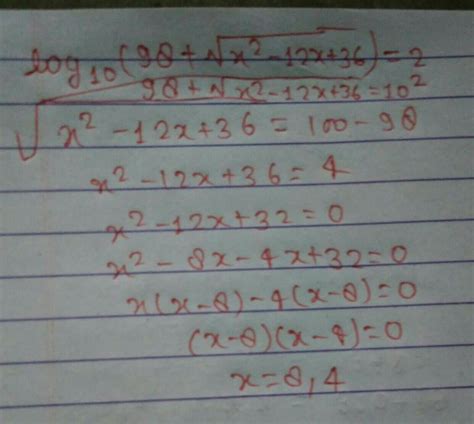 log₁₀(98+√x²-12x+36)=2
98+√x²-12x+36=10²
√x²-12x+36=100-98
x²-12x+36=4
x²-12x+32=0
x²-8x-4x+32=0
x(x-8)-4(x-8)=0
(x-8)(x-4)=0
x=8,4